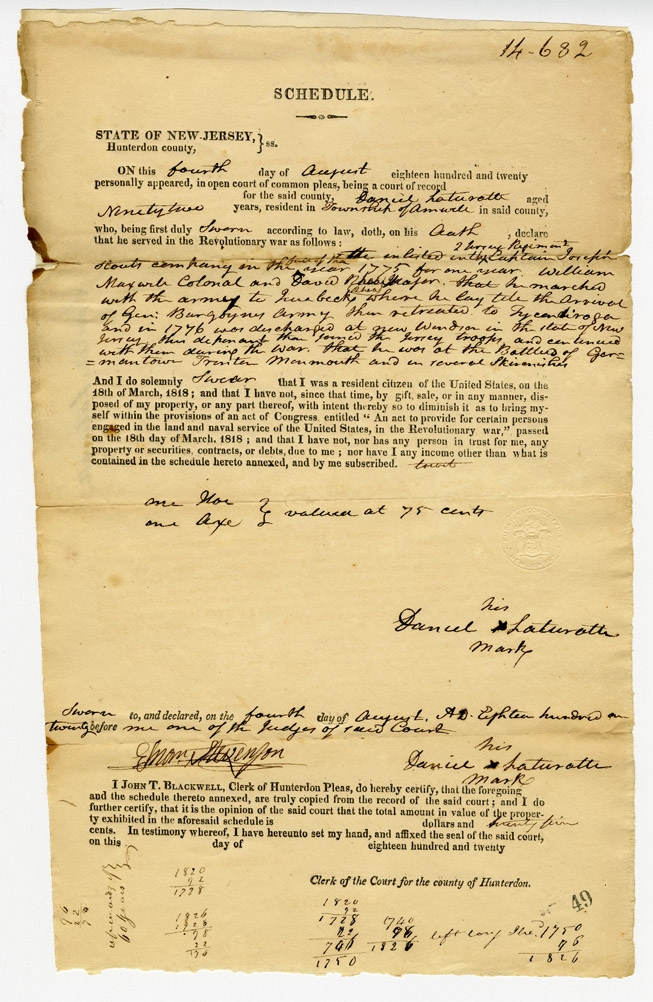 14-682
SCHEDULE.
STATE OF NEW-JERSEY, } ss.
Hunterdon county,
ON this fourth day of August eighteen hundred and twenty
personally appeared, in open court of common pleas, being a court of record
for the said county, Daniel Laturatte aged
Ninety two years, resident in Township of Amwell in said county,
who, being first duly Sworn according to law, doth, on his Oath, declare
that he served in the Revolutionary war as follows:
2 Jersey Regiment
he inlisted in the Captain Joseph
Stouts company in the year 1775 for one year. William
Maxwell Colonal and David Major. that he marched
with the army to Quebeck where he lay till the Arrival
of Gen: Burgoynes Army then retreated to Tycondiroga
and in 1776 was discharged at new Windsor in the state of New
Jersey, this deponant then joined the Jersey troops, and continued
with them during the War. that he was at the Battles of Ger=
=mantown Trenton Monmouth and in several Skirmishes
And I do solemnly Swear that I was a resident citizen of the United States, on the
18th of March, 1818; and that I have not, since that time, by gift, sale, or in any manner, dis-
posed of my property, or any part thereof, with intent thereby so to diminish it as to bring my-
self within the provisions of an act of Congress, entitled "An act to provide for certain persons
engaged in the land and naval service of the United States, in the Revolutionary war," passed
on the 18th day of March, 1818; and that I have not, nor has any person in trust for me, any
property or securities, contracts, or debts, due to me; nor have I any income other than what is
contained in the schedule hereto annexed, and by me subscribed.
one Hoe }
one Axe } valued at 75 cents
his
Daniel x Laturatte
mark
Sworn to, and declared, on the fourth day of August, AD. Eighteen hundred an
twenty before me one of the Judges of said Court
his
Stevenson Daniel x Laturatte
mark
I JOHN T. BLACKWELL, Clerk of Hunterdon Pleas, do hereby certify, that the foregoing
and the schedule thereto annexed, are truly copied from the record of the said court; and I do
further certify, that it is the opinion of the said court that the total amount in value of the proper-
ty exhibited in the aforesaid schedule is dollars and seventy five
cents. In testimony whereof, I have hereunto set my hand, and affixed the seal of the said court,
on this day of eighteen hundred and twenty
Clerk of the Court for the county of Hunterdon.
49
1820
92
1728
1820
92
1728
22
1750
1740
1826
left
1750
76
1826